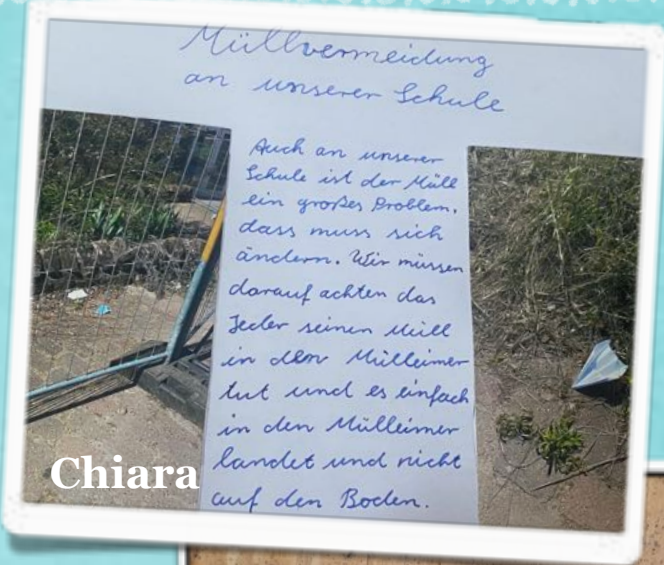 Müllvermeidung
an unserer Schule
Auch an unserer
Schule ist der Müll
ein großes Problem.
dass muss sich
ändern. Wir müssen
darauf achten das
Jeder seinen Müll
in den Mülleimer
tut und es einfach
in den Mülleimer
landet und nicht
auf den Boden.
Chiara